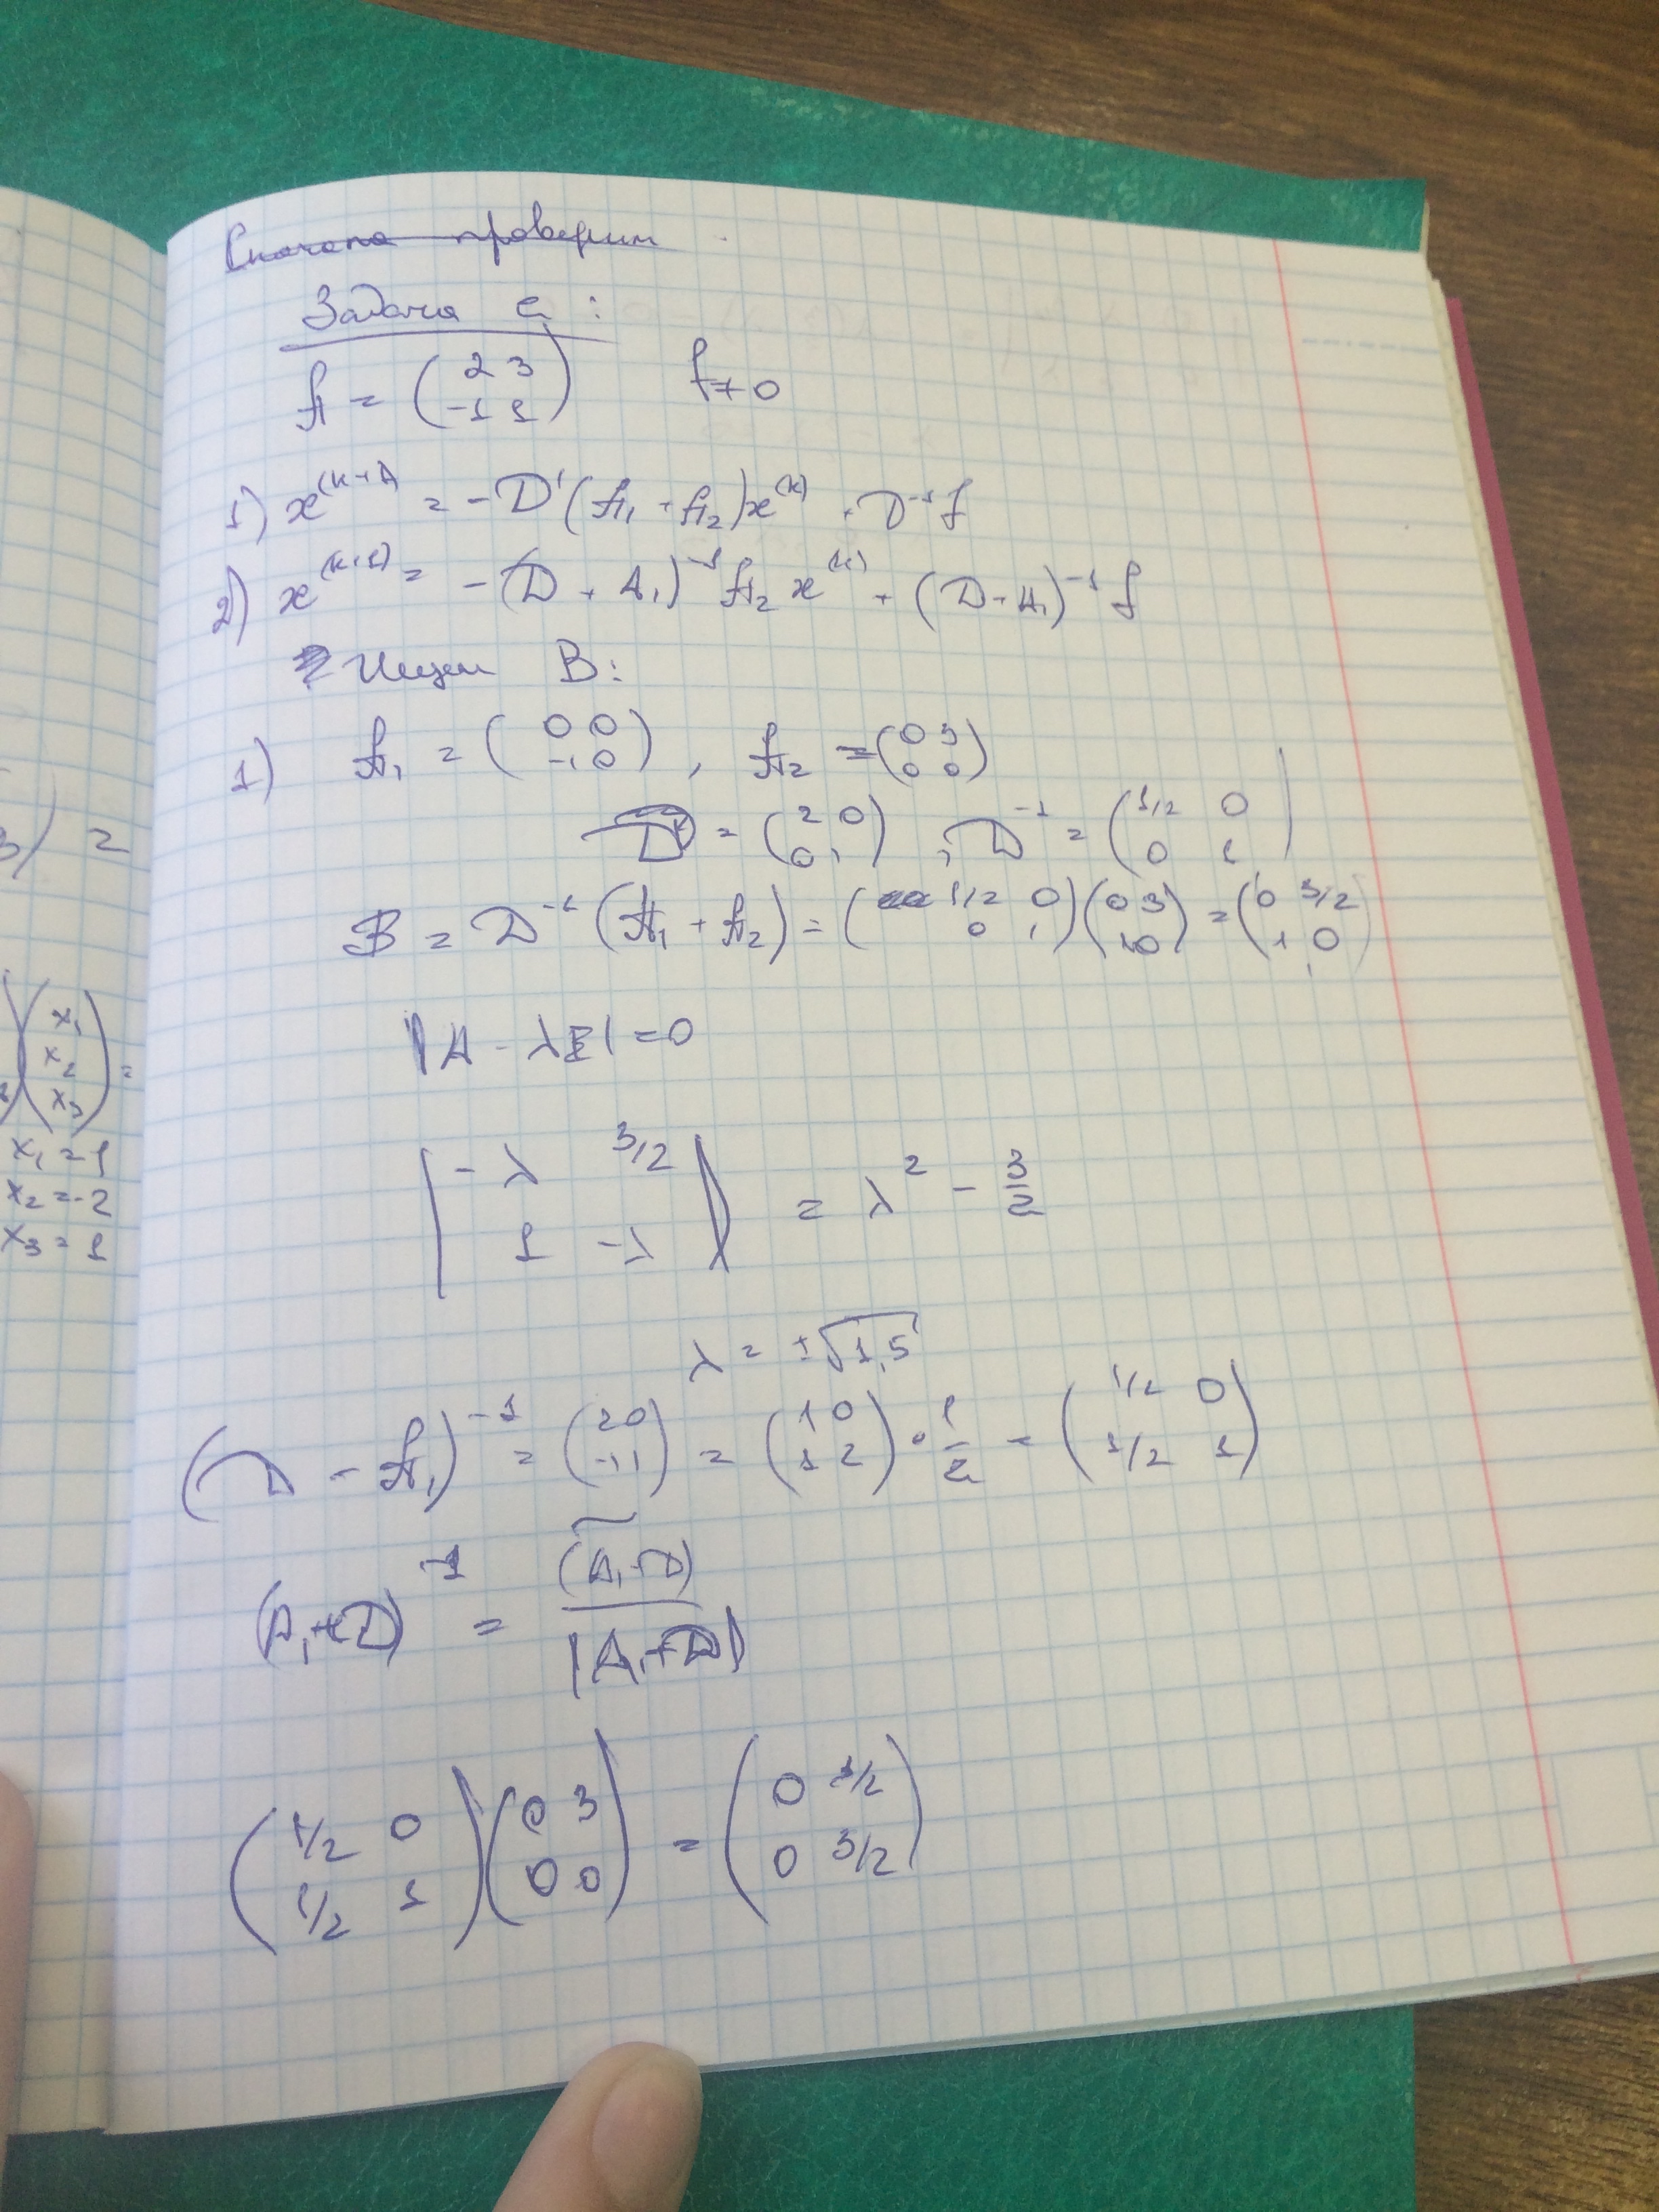 3) 2
x₁
x₂
x₃
=
x₁ = 1
x₂ = -2
x₃ = 1
Сначала проверим
Задача :
A = (2 3; -1 1) f ≠ 0
1) x^(k+1) = -D'(A₁ + A₂)x^(k) + D⁻¹f
2) x^(k+1) = -(D + A₁)⁻¹ A₂ x^(k) + (D + A₁)⁻¹ f
Ищем B:
1) A₁ = (0 0; -1 0), A₂ = (0 3; 0 0)
D = (2 0; 0 1), D⁻¹ = (1/2 0; 0 1)
B = D⁻¹(A₁ + A₂) = (1/2 0; 0 1)(0 3; 1 0) = (0 3/2; 1 0)
|A - λE| = 0
|-λ 3/2; 1 -λ| = λ² - 3/2
λ = ±√1,5
(D - A₁)⁻¹ = (2 0; -1 1) = (1 0; 1 2) · 1/2 = (1/2 0; 1/2 1)
(A₁+D)⁻¹ = (A₁+D)~ / |A₁+D|
(1/2 0; 1/2 1)(0 3; 0 0) = (0 3/2; 0 3/2)